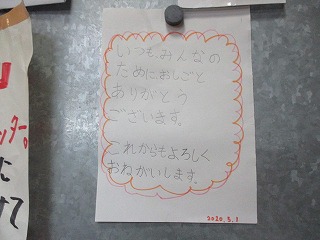 いつも、みんなの
ためにおしごと
ありがとう
ございます。
これからもよろしく
おねがいします。
2020.5.1